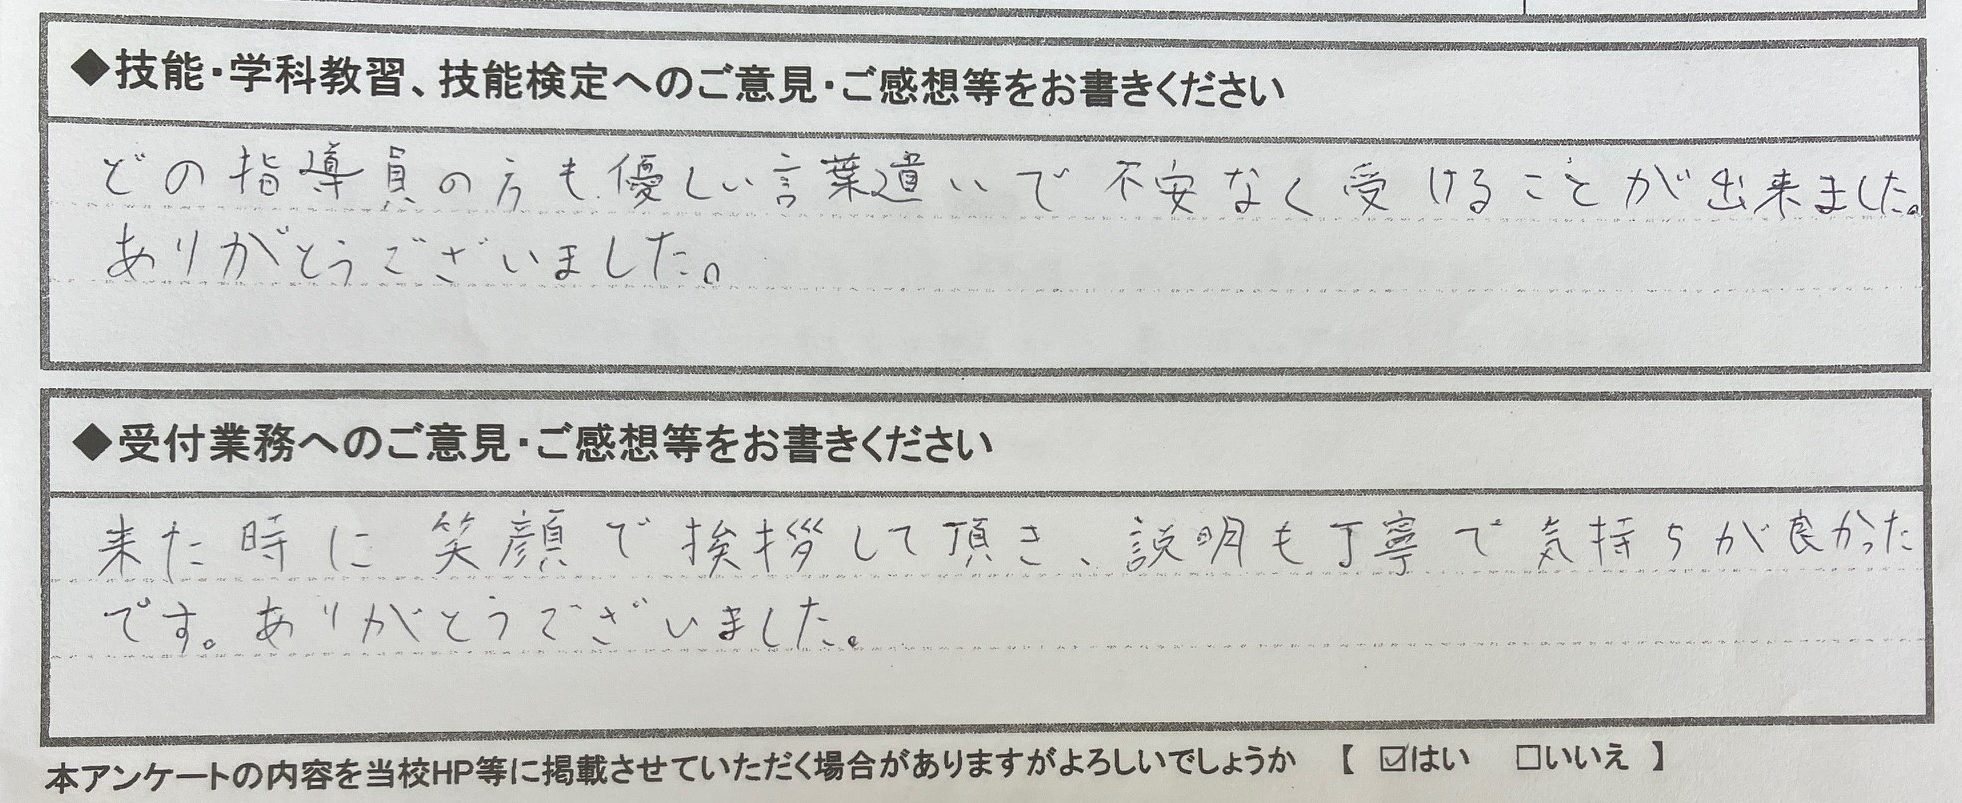 ◆技能・学科教習、技能検定へのご意見・ご感想等をお書きください
どの指導員の方も優しい言葉遣いで不安なく受けることが出来ました。
ありがとうございました。
◆受付業務へのご意見・ご感想等をお書きください
来た時に笑顔で挨拶して頂き、説明も丁寧で気持ちが良かった
です。ありがとうございました。
本アンケートの内容を当校HP等に掲載させていただく場合がありますがよろしいでしょうか 【 ☑はい □いいえ 】